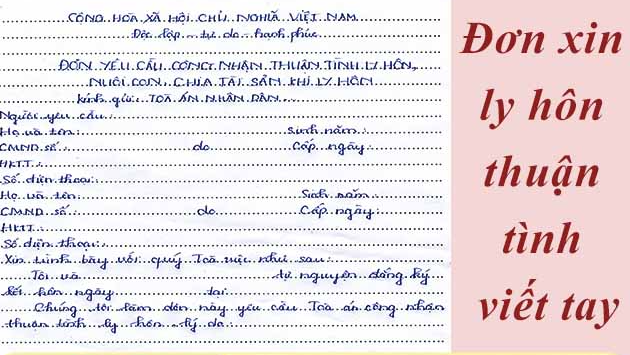 CỘNG HÒA XÃ HỘI CHỦ NGHĨA VIỆT NAM
Độc lập - tự do - hạnh phúc
ĐƠN YÊU CẦU CÔNG NHẬN THUẬN TÌNH LY HÔN,
NUÔI CON, CHIA TÀI SẢN KHI LY HÔN
kính gửi: TOÀ ÁN NHÂN DÂN
Người yêu cầu:
Họ và tên: Sinh năm:
CMND số: do Cấp ngày:
HKTT:
Số điện thoại:
Họ và tên: Sinh năm:
CMND số do Cấp ngày:
HKTT:
Số điện thoại:
Xin trình bày với quý Toà việc như sau:
Tôi và tự nguyện đăng ký
kết hôn ngày tại:
Chúng tôi làm đơn này yêu cầu Toà án công nhận
thuận tình ly hôn lý do:
Đơn xin
ly hôn
thuận
tình
viết tay